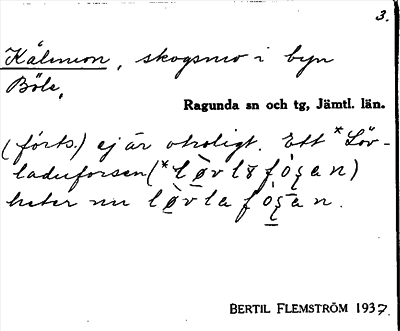 3.
Kålmon, skogsmo i byn
Böle,
Ragunda sn och tg, Jämtl. län.
(forts.) ej är otroligt. Ett *Löv-
laduforsen (*
heter nu
BERTIL FLEMSTRÖM 1937.